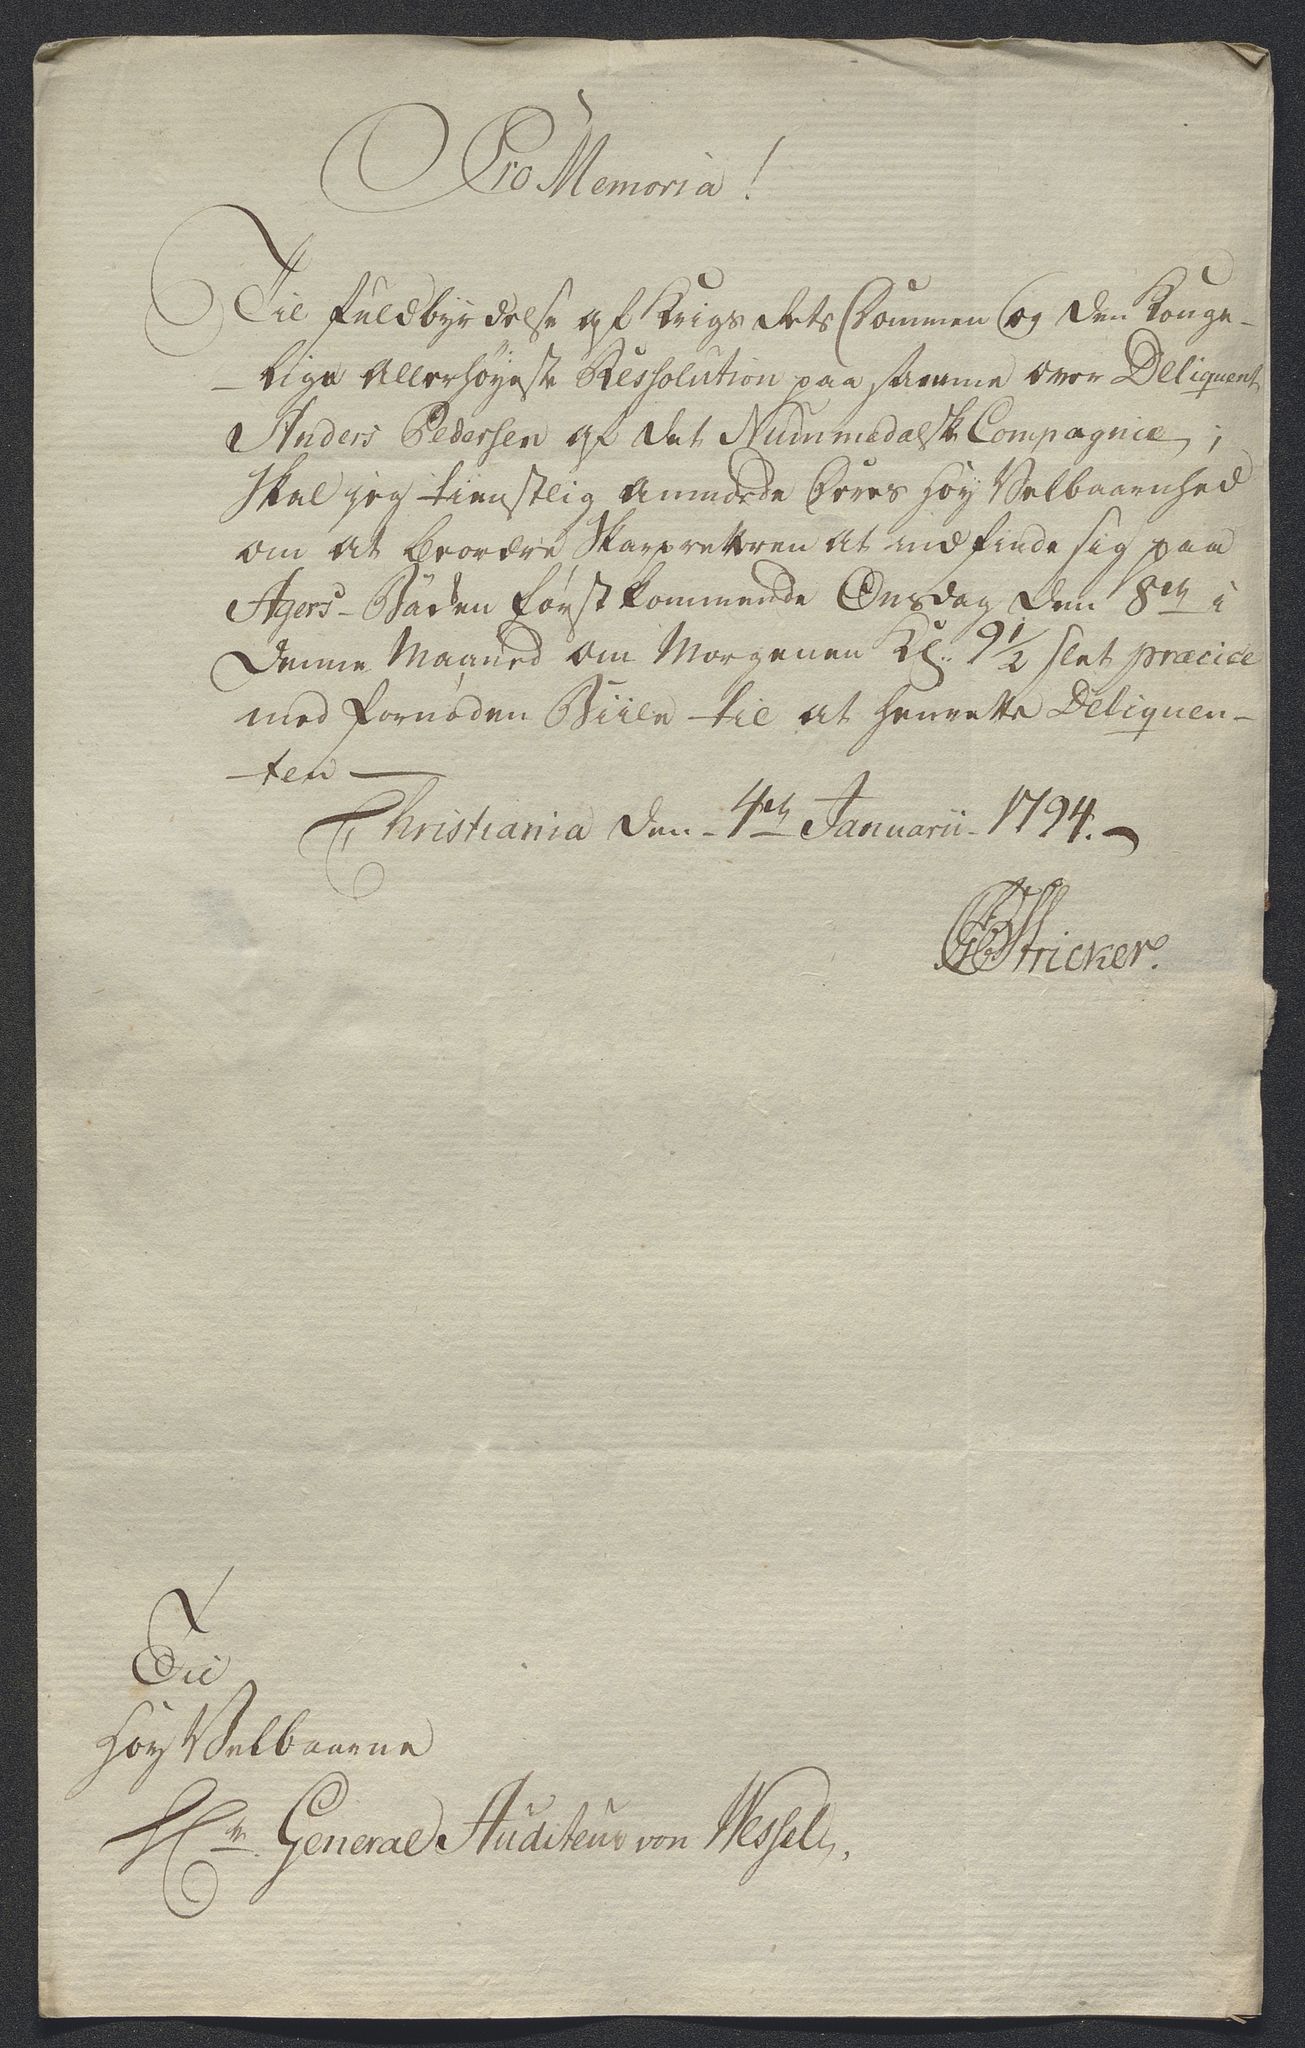 Pro Memoria!
Til fuldbyrdelse af Krigs Rets Dommen og den Konge-
-lige Allerhøyeste Ressolution paa samme over Deliquent
Anders Pedersen af det Nummedalske Compagnie,
skal jeg tienstlig anmode Deres Høy Velbaarenhed
om at beordre Skarpretteren at indfinde sig paa
Agers- først kommende Onsdag den 8de i
denne Maaned om Morgenen Kl: 9 1/2 slet præcise
med fornøden Biile til at henrette Deliquen-
-ten
Christiania den 4de Januarii 1794.
Stricker.
Til
Høy Velbaarne
Hr. General Auditeur von Wessel,